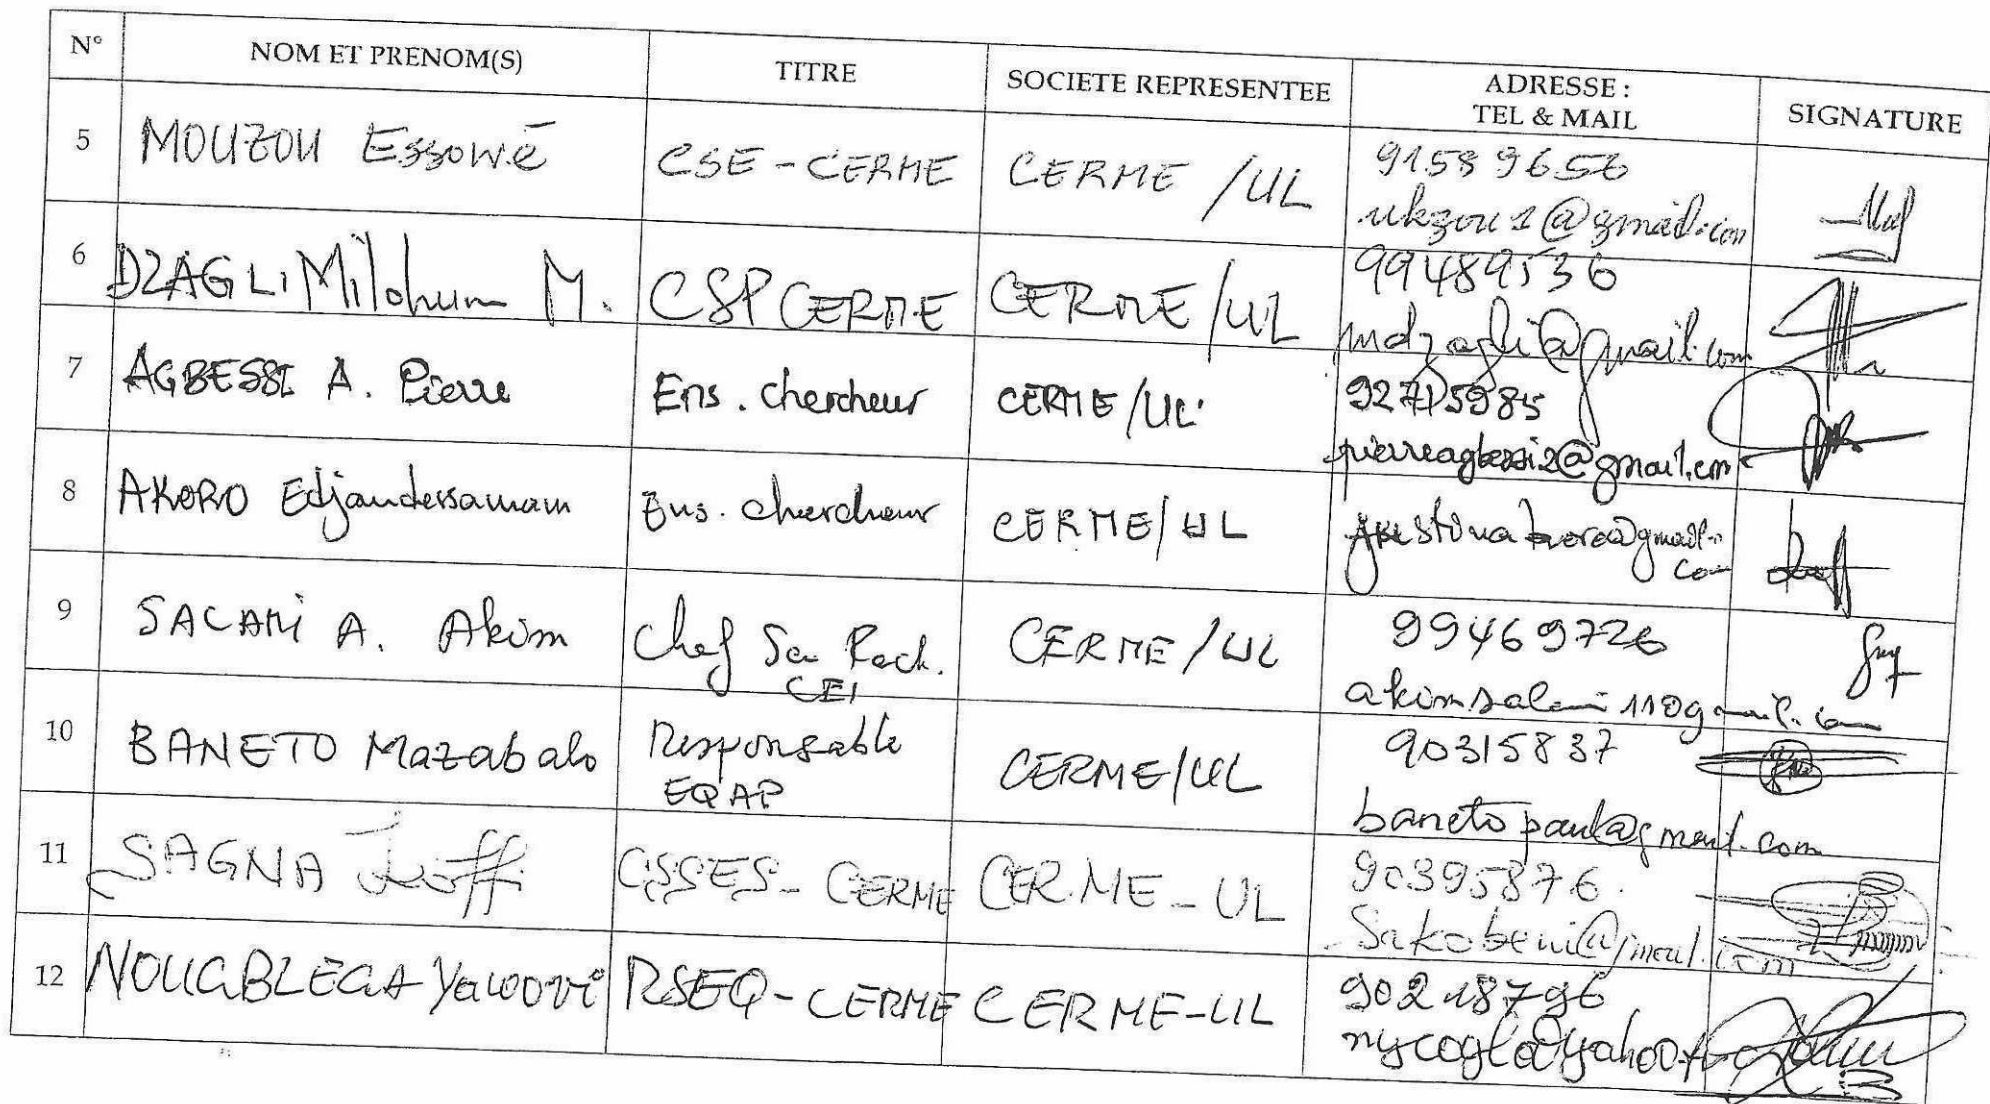 N° NOM ET PRENOM(S) TITRE SOCIETE REPRESENTEE ADRESSE : TEL & MAIL SIGNATURE
5 MOUZOU Essowè CSE-CERME CERME /UL 91589656
ukzou1@gmail.com
6 DZAGLI Milohum M. CSP CERME CERME/UL 99489536
mdzagli@gmail.com
7 AGBESSI A. Pierre Ens. chercheur CERME/UL 92715985
pierreagbessi2@gmail.com
8 AKORO Edjandessamam Ens. chercheur CERME/UL @gmail.
com
9 SALAMI A. Akim Chef CERME/UL 99469726
CEI akimsalami11@gmail.com
10 BANETO Mazabalo Responsable CERME/UL 90315837
EQAP banetopaul@gmail.com
11 SAGNA Koffi CSSES-CERME CERME-UL 90395876.
Sakobeni@gmail.com
12 NOUGBLEGA Yawovi RSEQ-CERME CERME-UL 90218796
nycogla@yahoo.fr